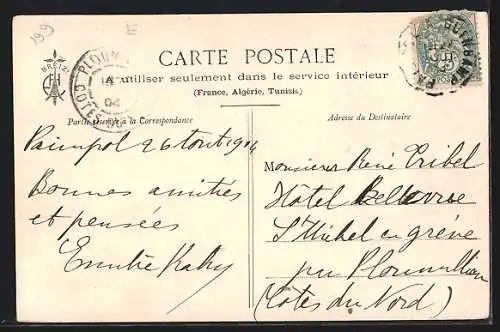 199
E
BREIZ
PLOUM
COTES DU
04
GUINGAMP
CARTE POSTALE
A utiliser seulement dans le service intérieur
(France, Algérie, Tunisie)
Partie réservée à la Correspondance
Adresse du Destinataire
Paimpol 26 Aout 1904
Bonnes amitiés
et pensées
Monsieur René Eribel
Hôtel Bellevue
St Michel en grève
par
(Côtes du Nord)